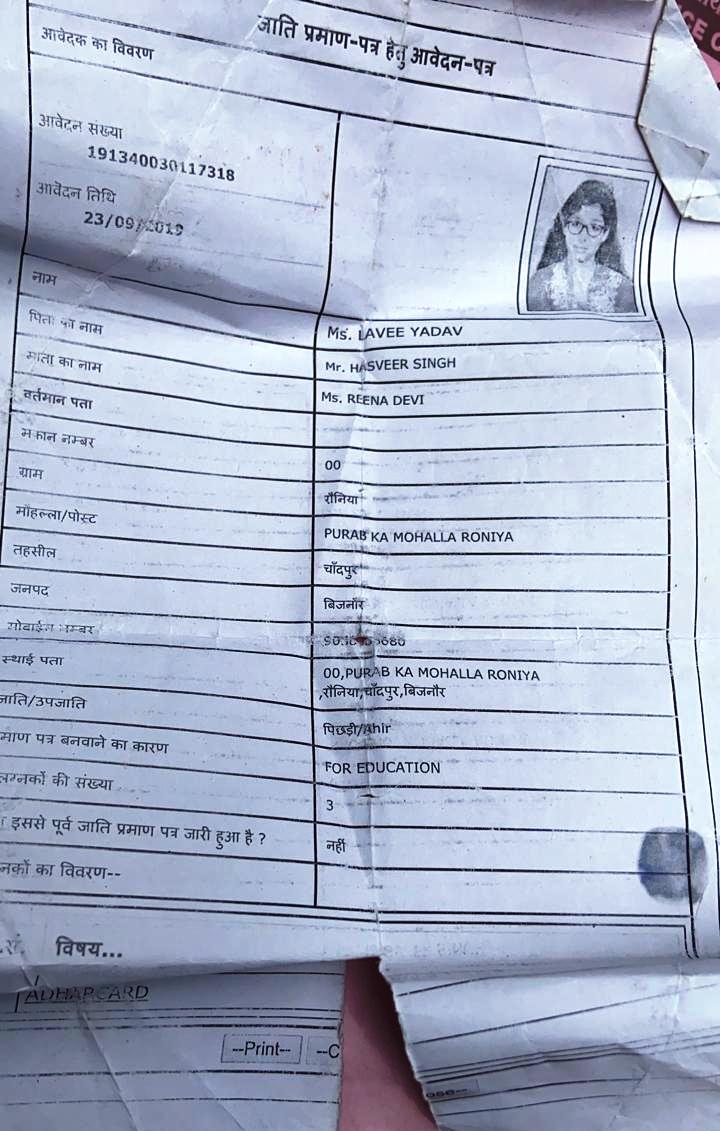 CE
जाति प्रमाण-पत्र हेतु आवेदन-पत्र
आवेदक का विवरण
आवेदन संख्या
191340030117318
आवेदन तिथि
23/09/2019
नाम Ms. LAVEE YADAV
पिता का नाम Mr. HASVEER SINGH
माता का नाम Ms. REENA DEVI
वर्तमान पता
मकान नम्बर 00
ग्राम रौनिया
मोहल्ला/पोस्ट PURAB KA MOHALLA RONIYA
तहसील चाँदपुर
जनपद बिजनौर
मोबाईल नम्बर
स्थाई पता 00,PURAB KA MOHALLA RONIYA
,रौनिया,चाँदपुर,बिजनौर
जाति/उपजाति पिछड़ी/Ahir
माण पत्र बनवाने का कारण FOR EDUCATION
लग्नकों की संख्या 3
इससे पूर्व जाति प्रमाण पत्र जारी हुआ है ? नहीं
नकों का विवरण--
विषय...
ADHARCARD
--Print-- --C